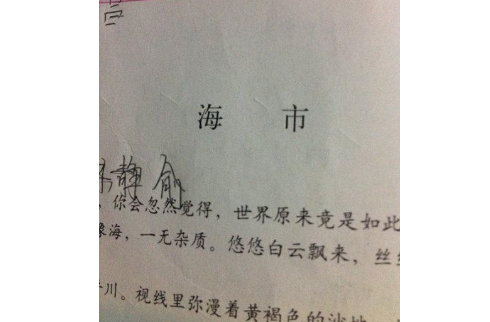 海 市
静 俞
，你会忽然觉得，世界原来竟是如此
像海，一无杂质。悠悠白云飘来，丝
川。视线里弥漫着黄褐色的沙地